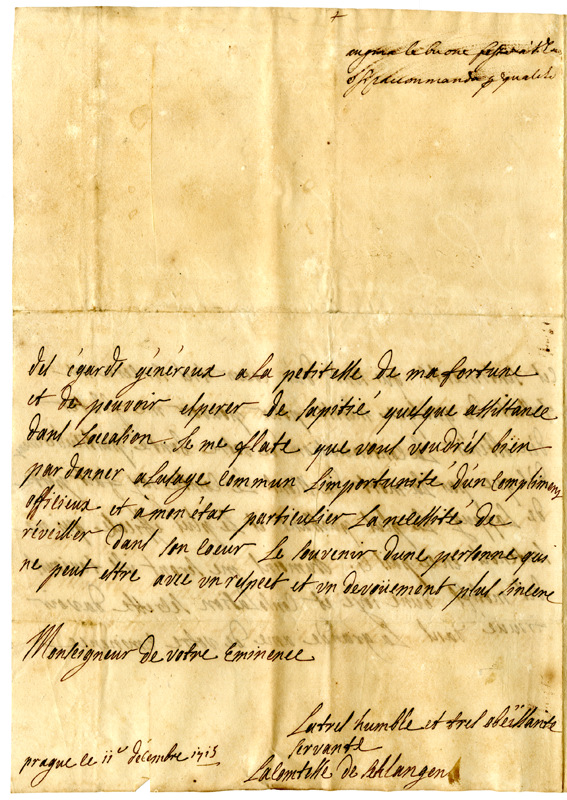 augura le buone feste
e si raccomanda
des égards généreux a la petitesse de ma fortune
et de pouvoir esperer de sa pitié quelque assistance
dans l'ocasion. Je me flate que vous voudrés bien
pardonner a l'usage commun l'importunité d'un compliment
officieux et à mon état particulier la necessité de
réveiller dans son coeur le souvenir d'une personne qui
ne peut estre avec un respect et un devoüement plus sincere
Monseigneur de votre Eminence
La tres humble et tres obëissante
servante
prague le 11e décembre 1715
La Comtesse de